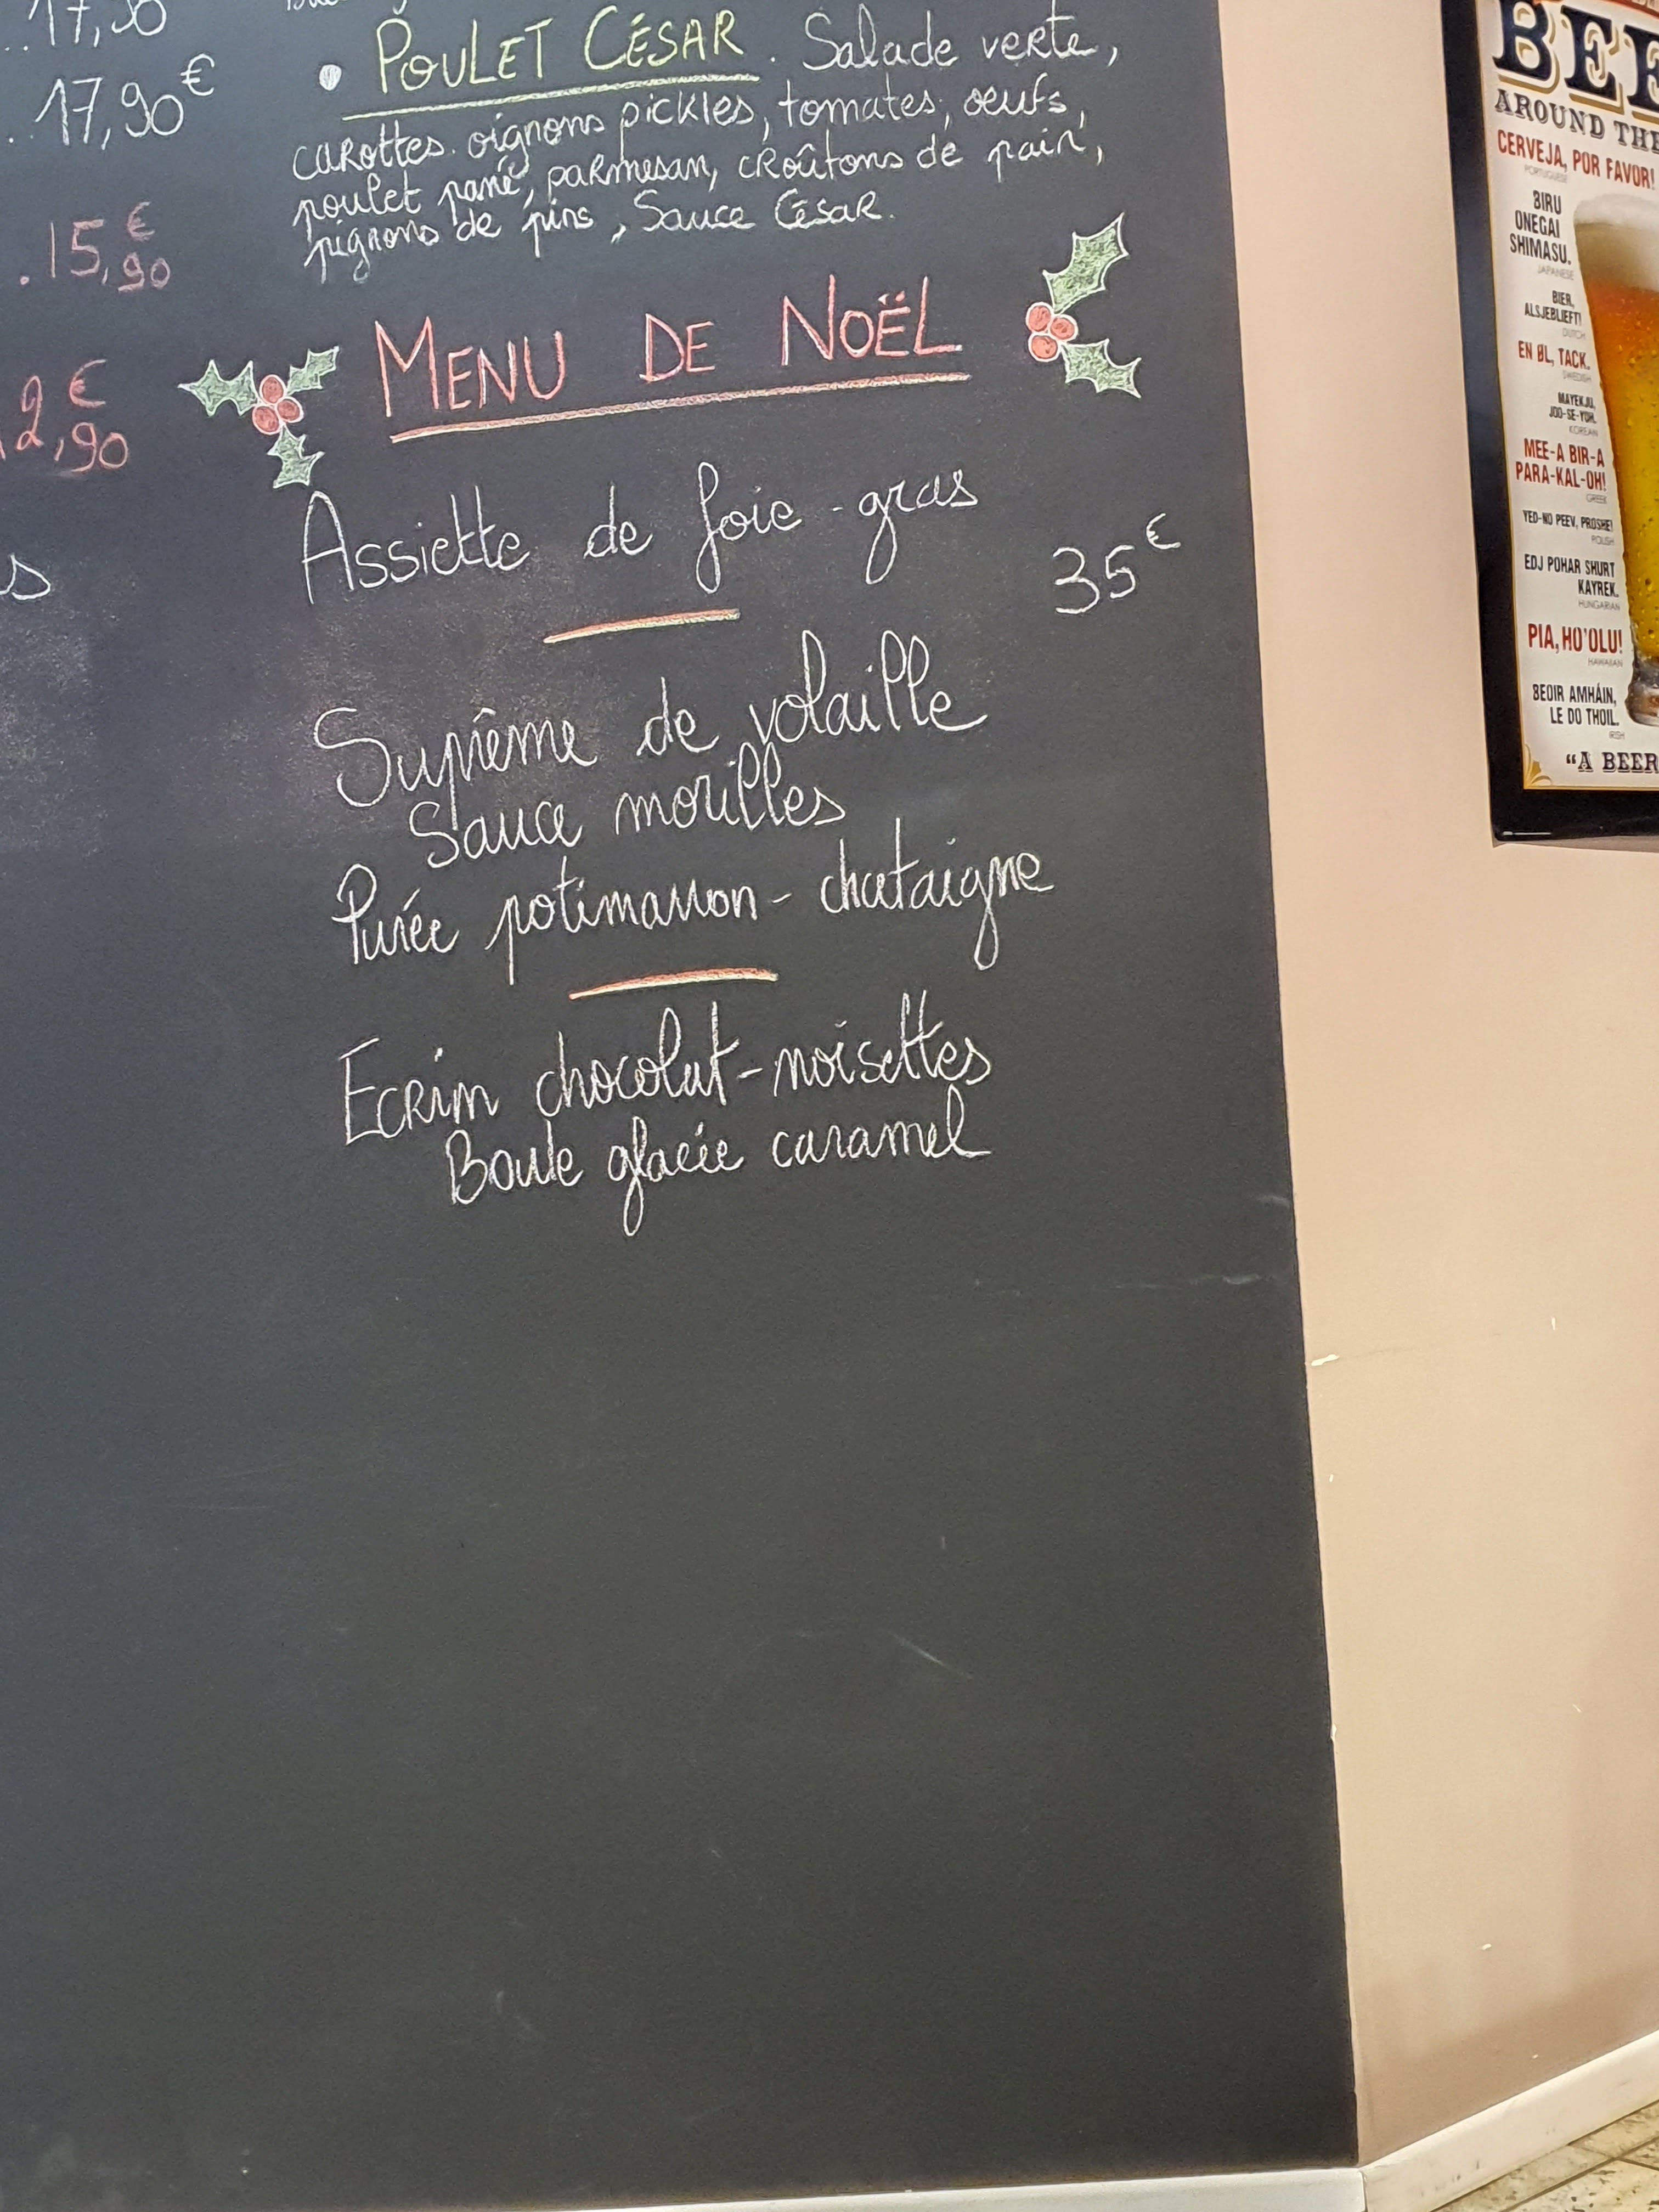 17,90€
15,90€
2,90€
• POULET CÉSAR. Salade verte,
carottes. oignons pickles, tomates, oeufs,
poulet pané, parmesan, croûtons de pain,
pignons de pins, Sauce César.
MENU DE NOËL
Assiette de foie-gras
35€
Suprême de volaille
Sauce morilles
Purée potimarron - chataigne
Ecrin chocolat-noisettes
Boule glacée caramel
AROUND THE
CERVEJA, POR FAVOR!
PORTUGUESE
BIRU
ONEGAI
SHIMASU.
JAPANESE
BIER,
ALSJEBLIEFT!
DUTCH
EN ØL, TACK.
SWEDISH
MAYEKJU,
JOO-SE-YOH.
KOREAN
MEE-A BIR-A
PARA-KAL-OH!
GREEK
YED-NO PEEV, PROSHE!
POLISH
EDJ POHAR SHURT
KAYREK.
HUNGARIAN
PIA, HO'OLU!
HAWAIIAN
BEOIR AMHÁIN,
LE DO THOIL.
IRISH
“A BEER